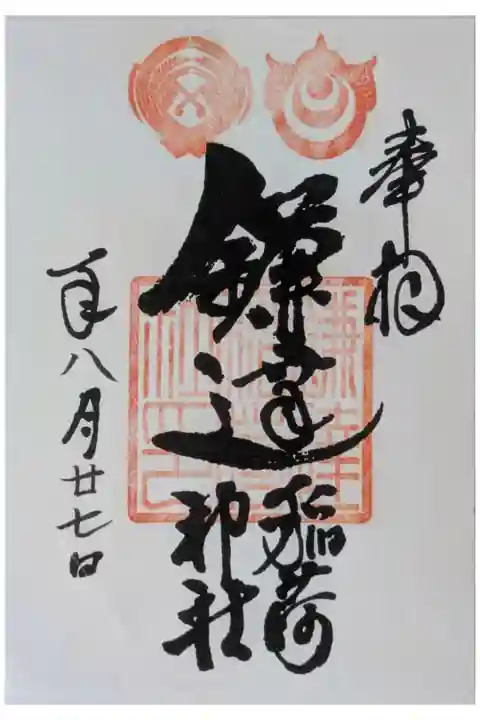 奉拝
鎌達
稲荷
神社
八月廿七日